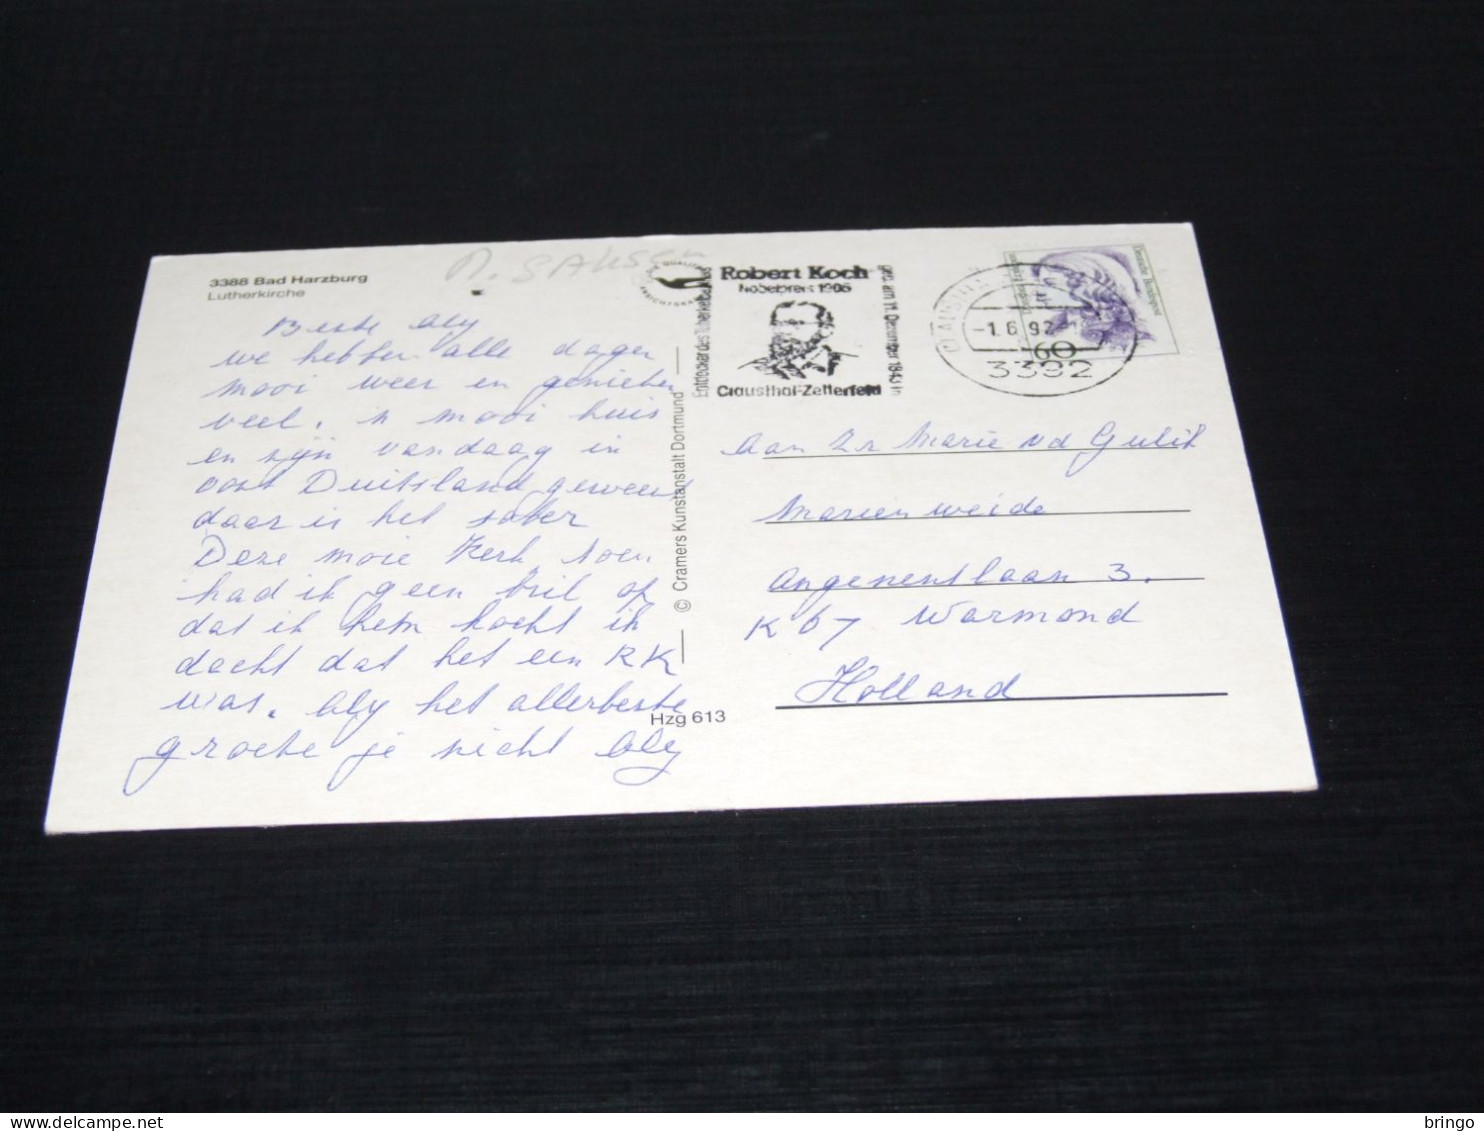 3388 Bad Harzburg
Lutherkirche
Beste Aly
we hebben alle dagen
mooi weer en genieten
veel. n mooi huis
en zijn vandaag in
oost Duitsland geweest
daar is het sober
Deze mooie Kerk toen
had ik geen bril op
dat ik hem kocht ik
dacht dat het een RK
was. Aly het allerbeste
groetn je nicht Aly
© Cramers Kunstanstalt Dortmund
Hzg 613
Robert Koch
Nobelpreis 1905
Entdecker des Tuberkelbazillus
geb. am 11. Dezember 1843 in
Clausthal-Zellerfeld
-1.6.92-
3392
Deutsche Bundespost
60
Aan Zr Marie vd Gulik
Marienweide
Angenentlaan 3.
K 67 Warmond
Holland
bringo
www.delcampe.net